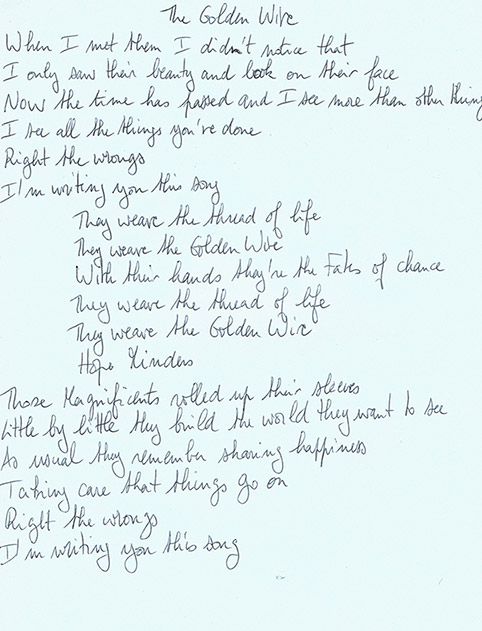 The Golden Wire
When I met them I didn't notice that
I only saw their beauty and look on their face
Now the time has passed and I see more than other thing
I see all the things you've done
Right the wrongs
I'm writing you this song
They weave the thread of life
They weave the Golden Wire
With their hands they're the Fates of chance
They weave the thread of life
They weave the Golden Wire
Hope Kinders
Those Magnificents rolled up their sleeves
Little by little they build the world they want to see
As usual they remember sharing happiness
Taking care that things go on
Right the wrongs
I'm writing you this song